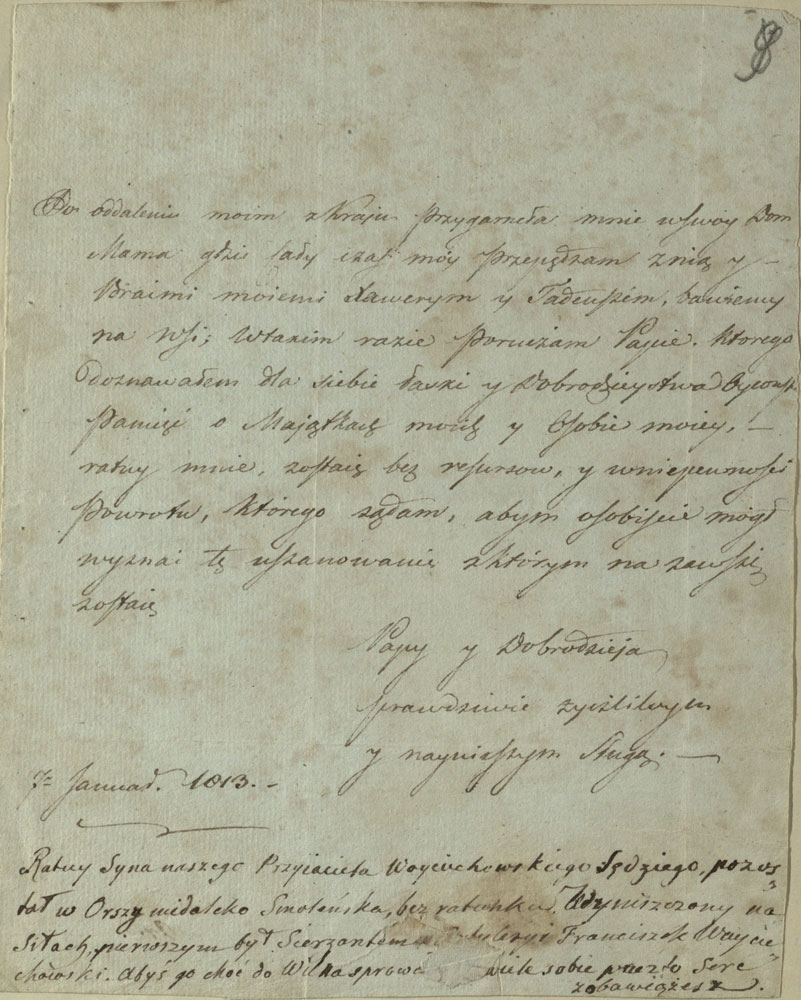 8
Po oddaleniu moim z Kraju przygarneła mnie w swóy Dom
Mama gdzie cały czas móy przepędzam z nią y –
Braćmi moiemi Xawerym y Tadeuszem, bawiemy
na Wsi; w takim razie poruczam Papie. którego
doznawałem dla siebie łaski y Dobrodzieystwa
Pamięć o Majątkach moich y Osobie moiey, –
ratuy mnie, zostaię bez resursow, y w niepewności
Powrotu, którego żądam, abym osobiście mógł
wyznać tę uszanowanie z którym na zawsze
zostaię
Papy y Dobrodzieja
prawdziwie życzliwym
y nayniższym Sługą. –
7 Januar. 1813. –
Ratuy Syna naszego Przyiaciela Woyciechowskiego Sędziego, pozos=
tał w Orszy niedaleko Smoleńska, bez ratunku. Wyniszczony na
Siłach, pierwszym był Sierżantem Artyleryi Franciszek Woycie=
chowski. Abyś go choć do Wilna sprowa wiele sobie przez to Serc
zobowiążesz.